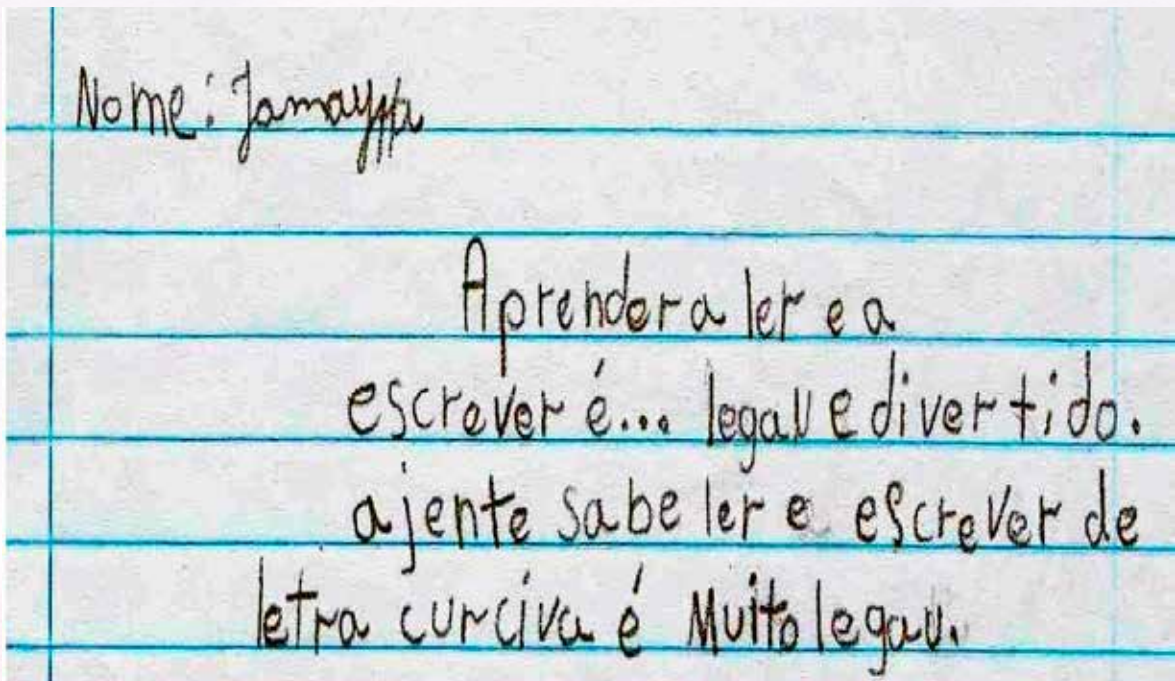 Nome: Jamayssa
Aprender a ler e a
escrever é... legau e divertido.
ajente sabe ler e escrever de
letra curciva é Muito legau.